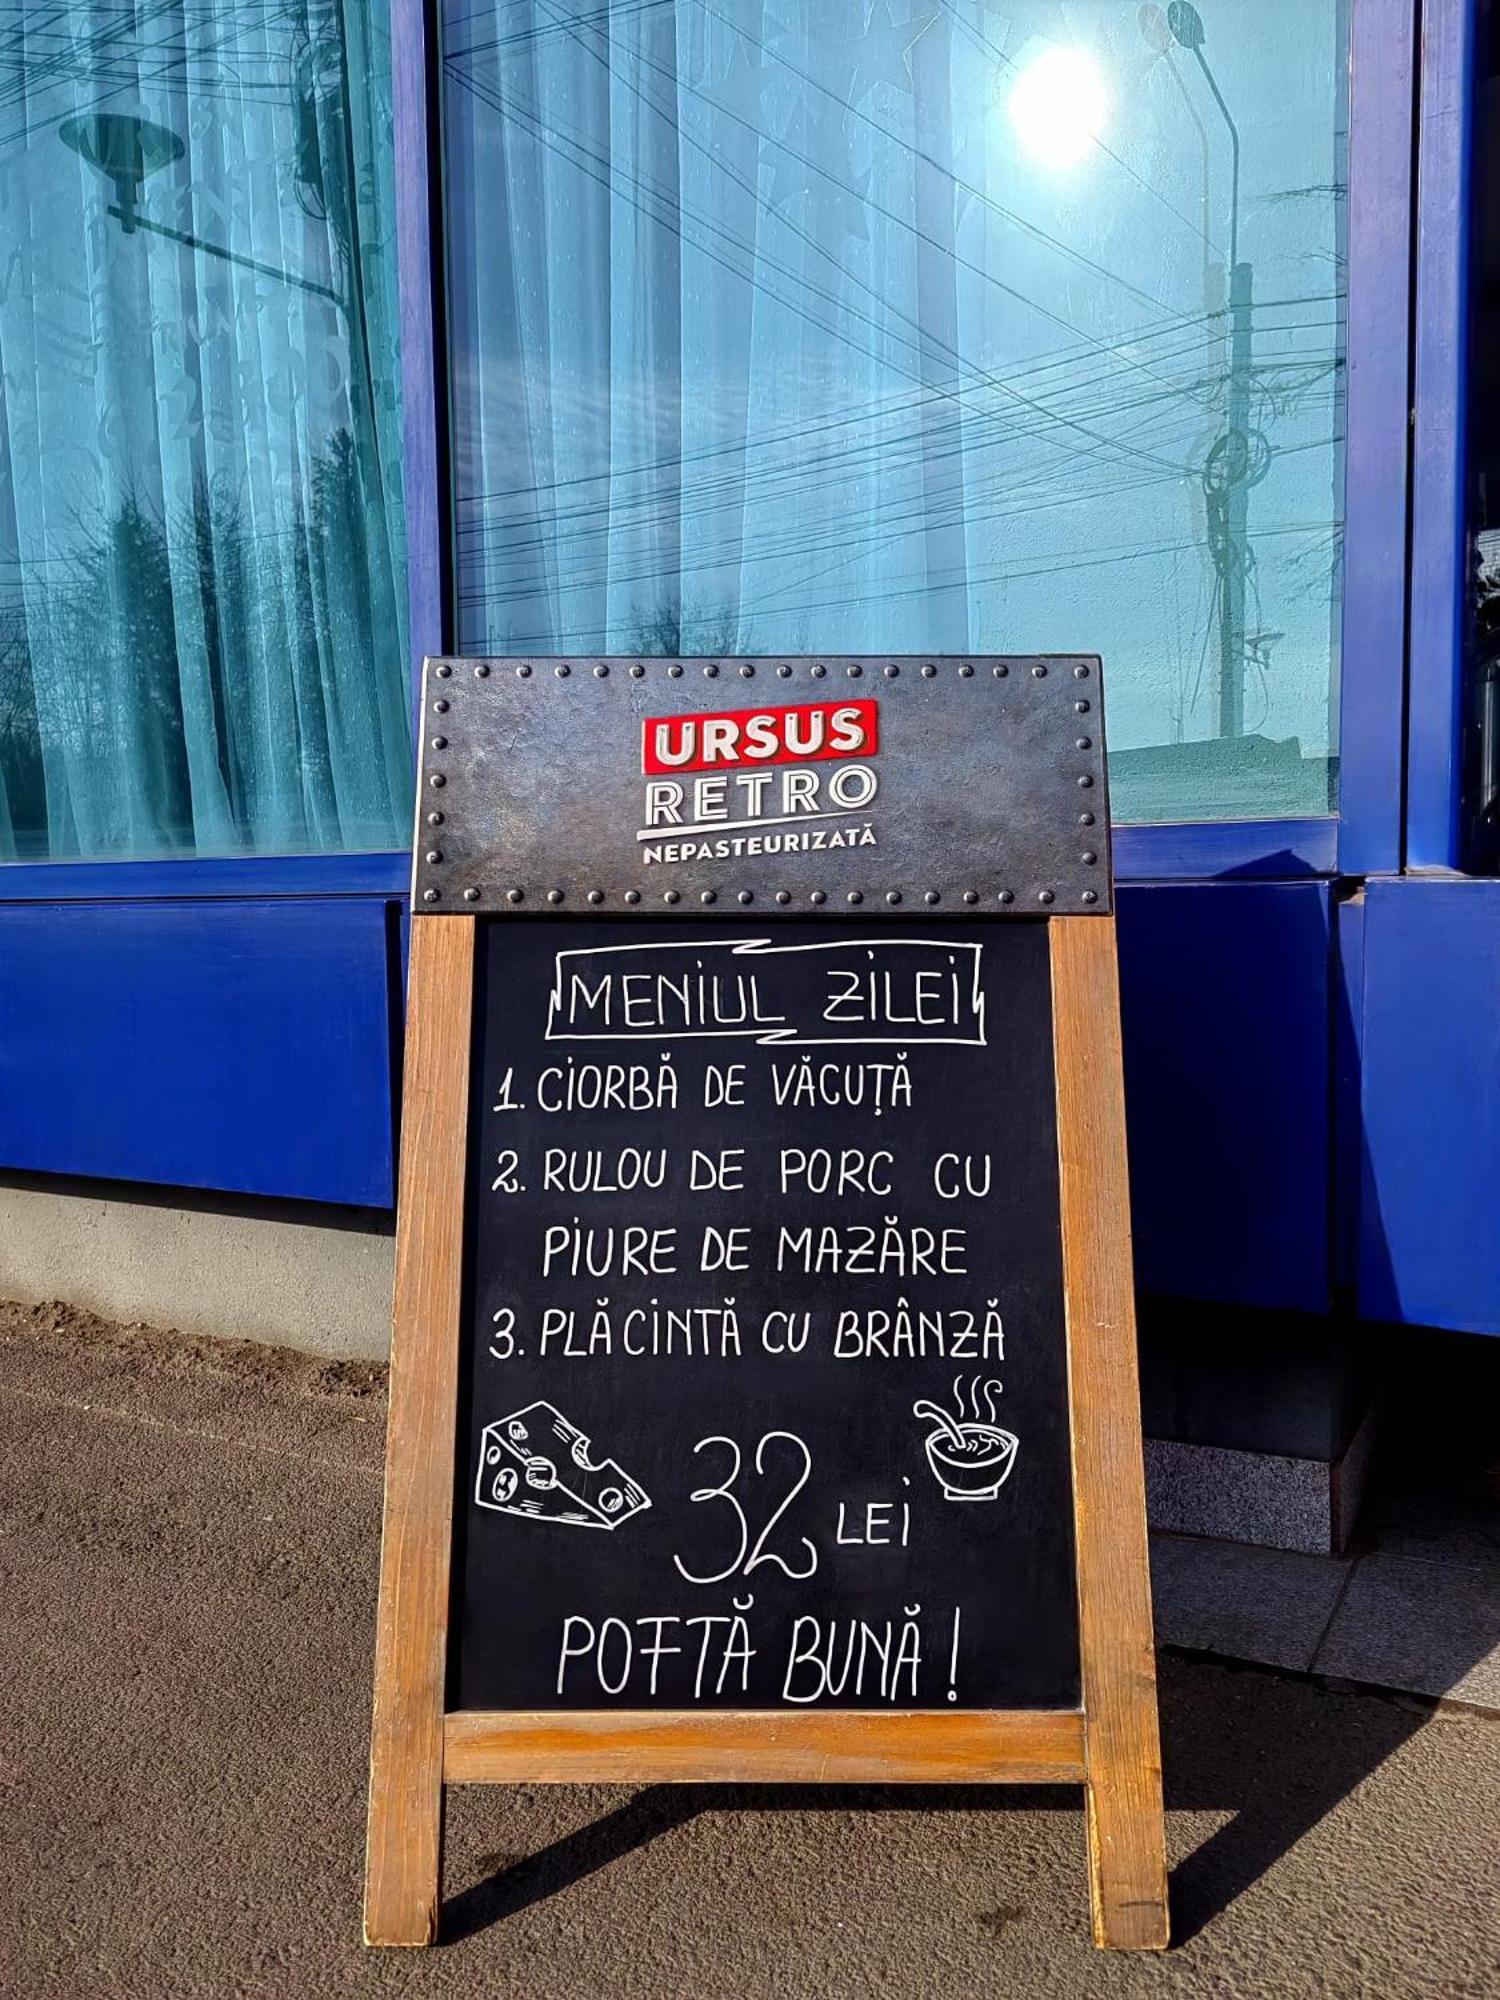 URSUS
RETRO
NEPASTEURIZATĂ
MENIUL ZILEI
1. CIORBĂ DE VĂCUȚĂ
2. RULOU DE PORC CU
PIURE DE MAZĂRE
3. PLĂCINTĂ CU BRÂNZĂ
32 LEI
POFTĂ BUNĂ!